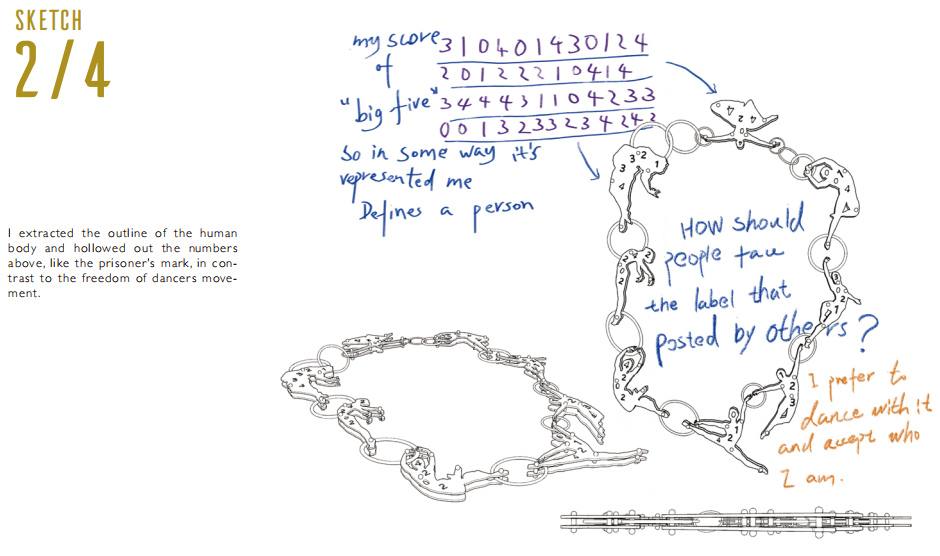 SKETCH
2/4
my score
of
"big five"
3 1 0 4 0 1 4 3 0 1 2 4
2 0 1 2 2 2 1 0 4 1 4
3 4 4 4 3 1 1 0 4 2 3 3
0 0 1 3 2 3 3 2 3 4 2 4 2
So in some way it's
represented me
Defines a person
I extracted the outline of the human
body and hollowed out the numbers
above, like the prisoner's mark, in con-
trast to the freedom of dancers move-
ment.
HOW should
people face
the label that
posted by others?
I prefer to
dance with it
and accept who
I am.